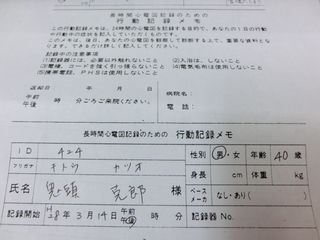 長時間心電図記録のための
行動記録メモ
この行動記録メモは、24時間の心電図を記録する目的で、あなたの1日の行動
や行動中の症状を記入していただくものです。
このメモは、後日、あなたの心電図を解読して診断する上で、重要な資料とな
ります。できるだけ詳しくご記入ください。
記録中の注意事項
(1)記録器に、必要以上触れないこと
(2)入浴は、しないこと
(3)電極、コードを強く引っ張らないこと
(4)電気毛布は使用しないこと
(5)携帯電話、PHSは使用しないこと
返却日 月 日
午前
午後 時 分ごろご来院ください。
病院名:
電話:
長時間心電図記録のための 行動記録メモ
ID 424
性別 男・女 年齢 40歳
フリガナ キトウ カツオ
氏名 鬼頭 克郎 様
身長 cm 体重 kg
ペースメーカ なし・あり( )
記録開始 H28年3月14日 午前 午後 時 分
記録器No.